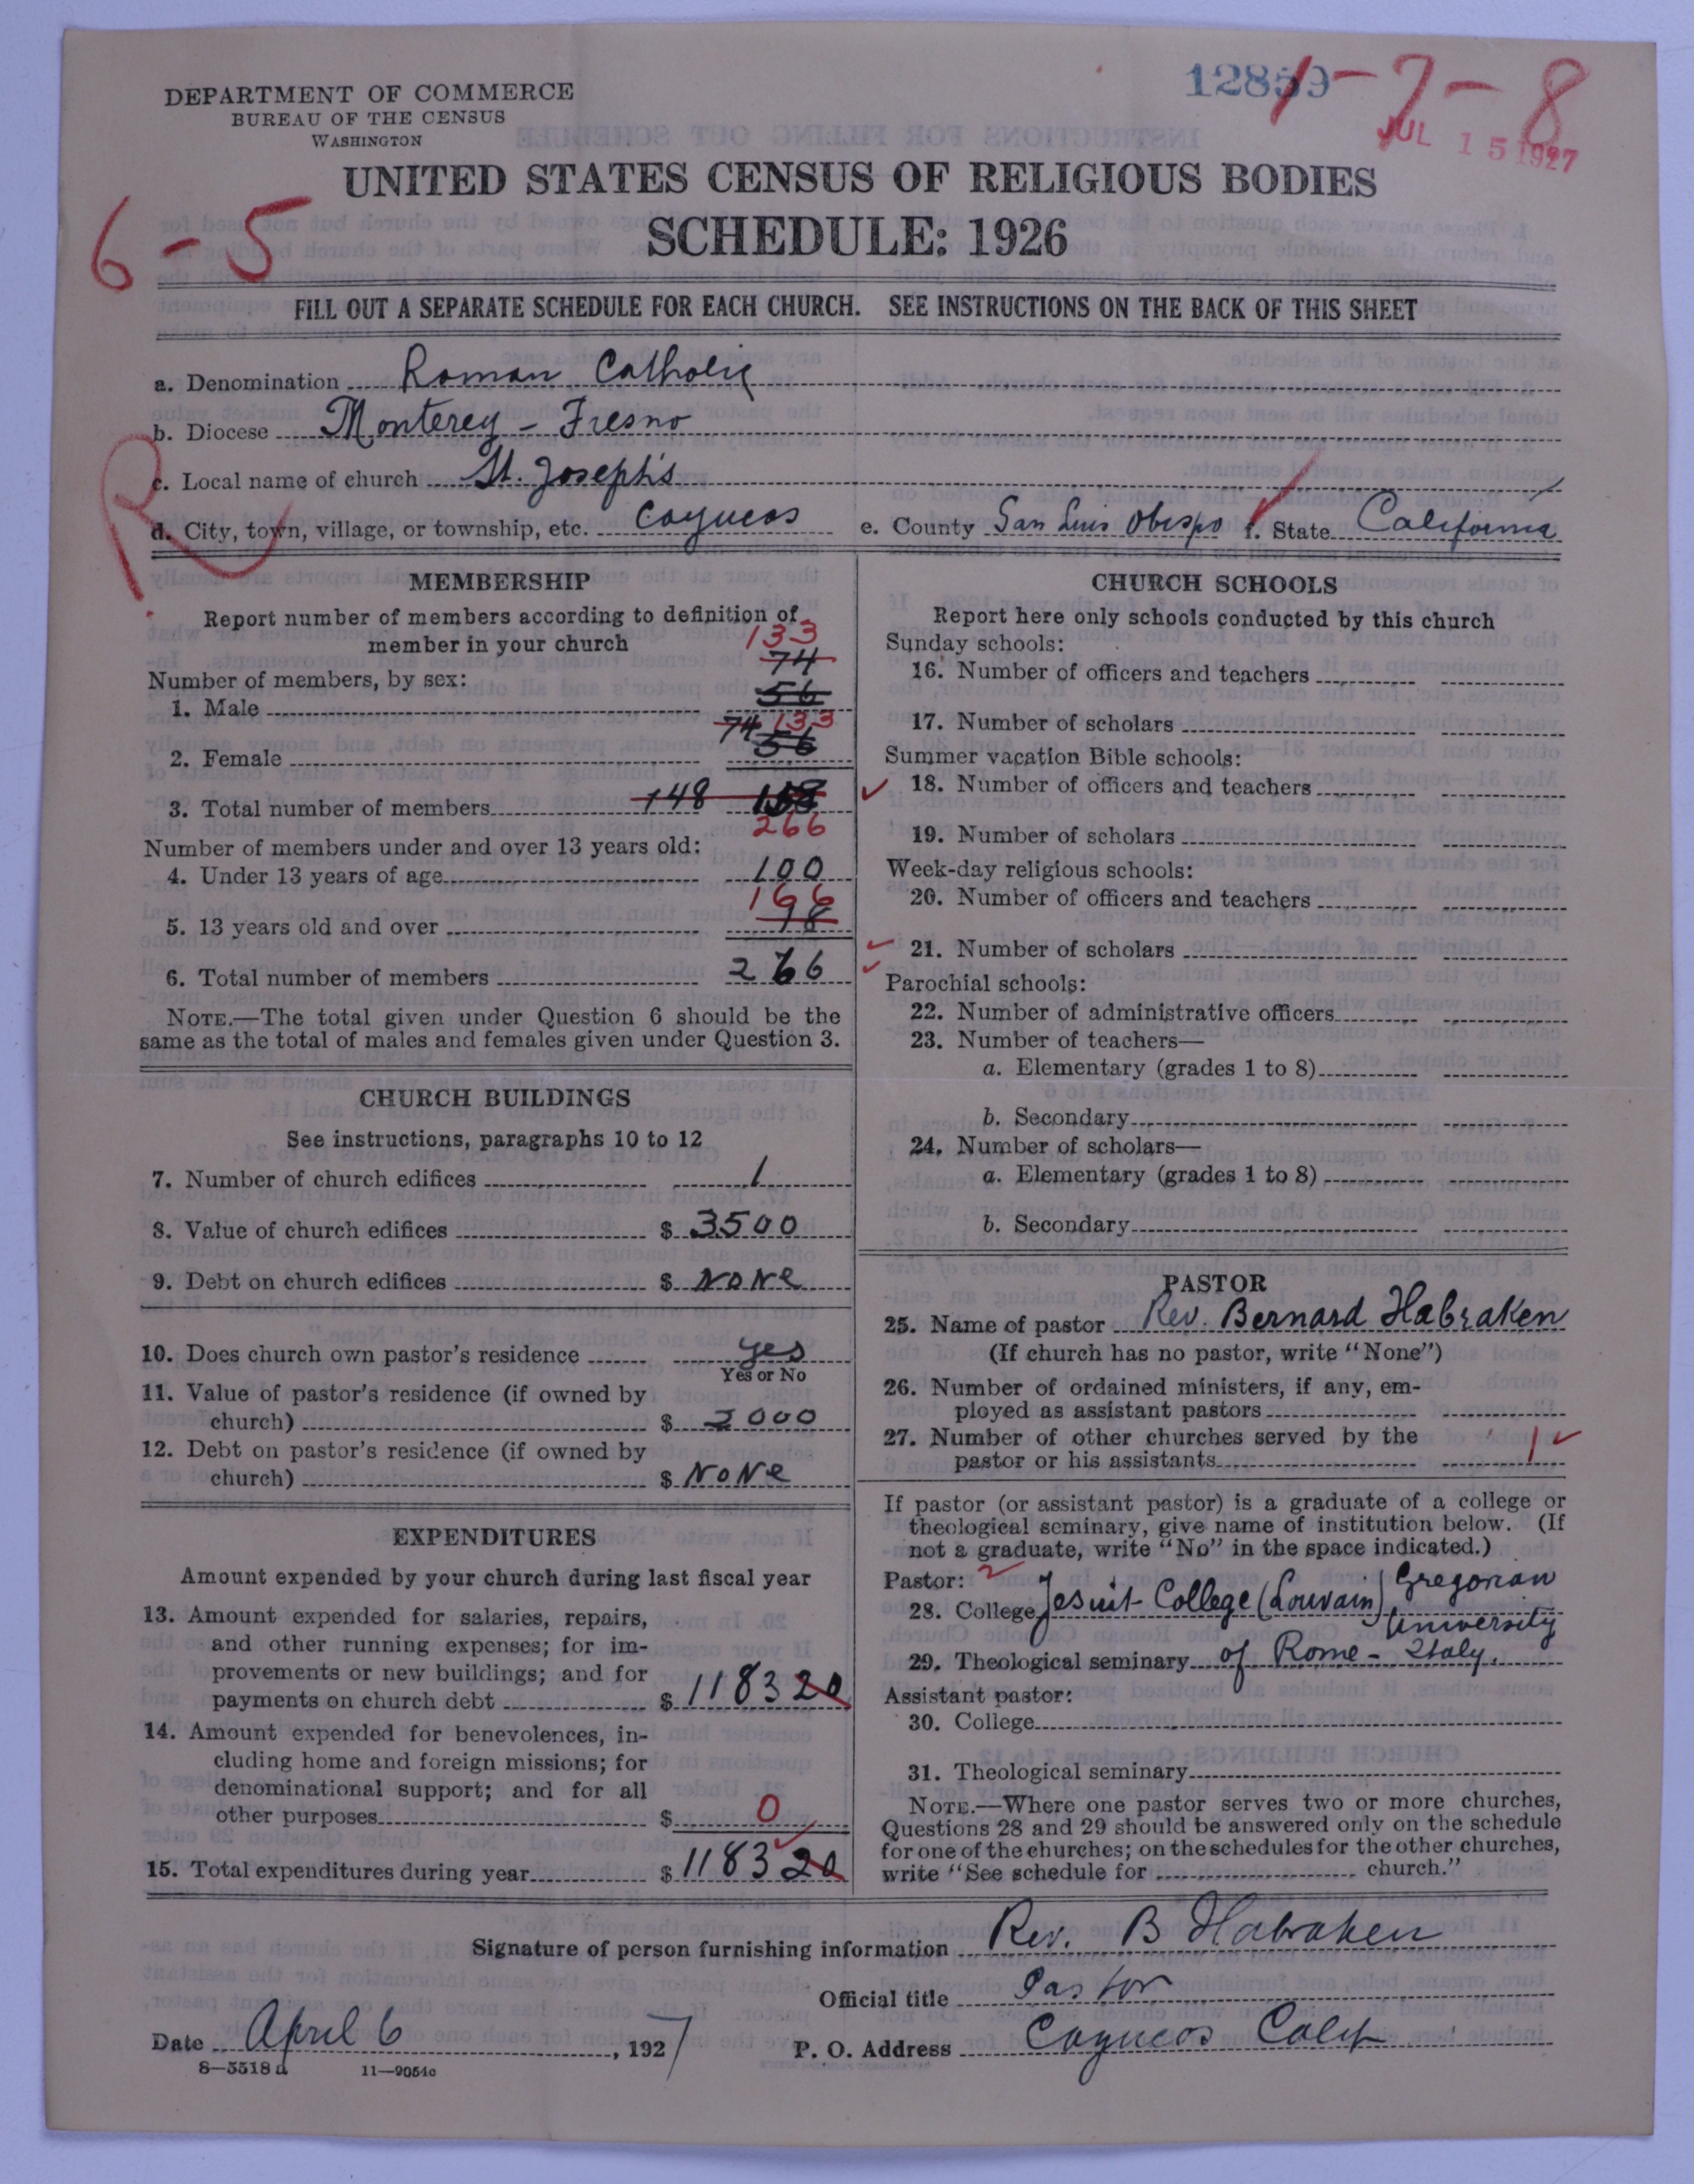 DEPARTMENT OF COMMERCE
BUREAU OF THE CENSUS
WASHINGTON
12859
1-7-8
JUL 15 1927
UNITED STATES CENSUS OF RELIGIOUS BODIES
SCHEDULE: 1926
6-5
FILL OUT A SEPARATE SCHEDULE FOR EACH CHURCH. SEE INSTRUCTIONS ON THE BACK OF THIS SHEET
a. Denomination Roman Catholic
b. Diocese Monterey - Fresno
R
c. Local name of church St. Joseph's
d. City, town, village, or township, etc. Cayucos e. County San Luis Obispo f. State California
MEMBERSHIP
Report number of members according to definition of
member in your church
133
74
Number of members, by sex:
56
1. Male
74 133
56
2. Female
3. Total number of members 148
266
Number of members under and over 13 years old:
4. Under 13 years of age 100
166
5. 13 years old and over 98
6. Total number of members 266
NOTE.—The total given under Question 6 should be the
same as the total of males and females given under Question 3.
CHURCH BUILDINGS
See instructions, paragraphs 10 to 12
7. Number of church edifices 1
8. Value of church edifices $ 3500
9. Debt on church edifices $ NoNe
10. Does church own pastor's residence yes
Yes or No
11. Value of pastor's residence (if owned by
church) $ 2000
12. Debt on pastor's residence (if owned by
church) $ NoNe
EXPENDITURES
Amount expended by your church during last fiscal year
13. Amount expended for salaries, repairs,
and other running expenses; for im-
provements or new buildings; and for
payments on church debt $ 1183 20
14. Amount expended for benevolences, in-
cluding home and foreign missions; for
denominational support; and for all
other purposes $ 0
15. Total expenditures during year $ 1183 20
CHURCH SCHOOLS
Report here only schools conducted by this church
Sunday schools:
16. Number of officers and teachers
17. Number of scholars
Summer vacation Bible schools:
18. Number of officers and teachers
19. Number of scholars
Week-day religious schools:
20. Number of officers and teachers
21. Number of scholars
Parochial schools:
22. Number of administrative officers
23. Number of teachers—
a. Elementary (grades 1 to 8)
b. Secondary
24. Number of scholars—
a. Elementary (grades 1 to 8)
b. Secondary
PASTOR
25. Name of pastor Rev. Bernard Habraken
(If church has no pastor, write "None")
26. Number of ordained ministers, if any, em-
ployed as assistant pastors
27. Number of other churches served by the
pastor or his assistants 1
If pastor (or assistant pastor) is a graduate of a college or
theological seminary, give name of institution below. (If
not a graduate, write "No" in the space indicated.)
Pastor: 2
28. College Jesuit College (Louvain) Gregorian
University
29. Theological seminary of Rome - Italy.
Assistant pastor:
30. College
31. Theological seminary
NOTE.—Where one pastor serves two or more churches,
Questions 28 and 29 should be answered only on the schedule
for one of the churches; on the schedules for the other churches,
write "See schedule for church."
Signature of person furnishing information Rev. B Habraken
Official title Pastor
Date April 6, 1927 P. O. Address Cayucos Calif
8-5518a 11-9054c